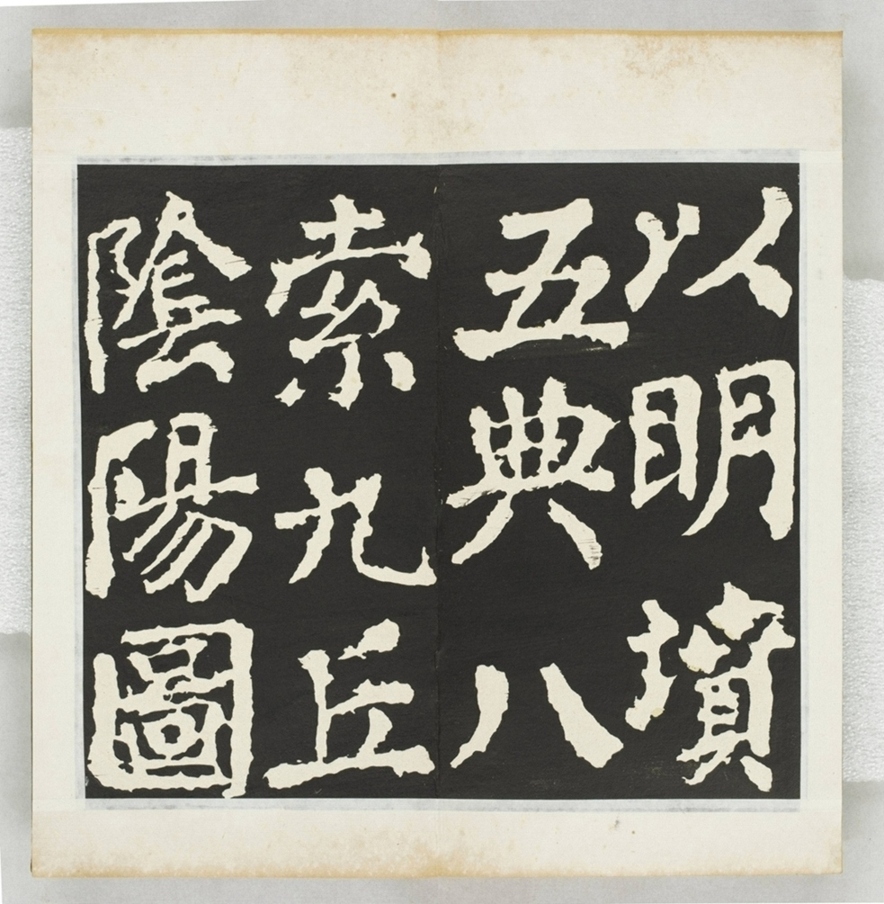 以明墳
五典八
索九丘
陰陽圖